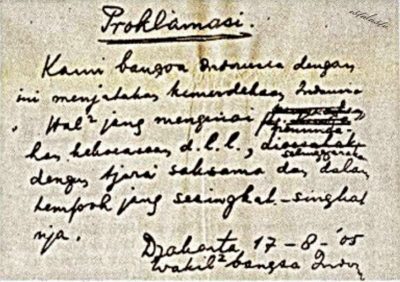 Proklamasi.
Kami bangsa Indonesia dengan
ini menjatakan kemerdekaan Indonesia
. Hal² jang mengenai
peminda-
han kekoeasaan d.l.l., diselenggarakan
dengan tjara saksama dan dalam
tempoh jang sesingkat-singkat
nja.
Djakarta, 17-8-'05
Wakil² bangsa Indon